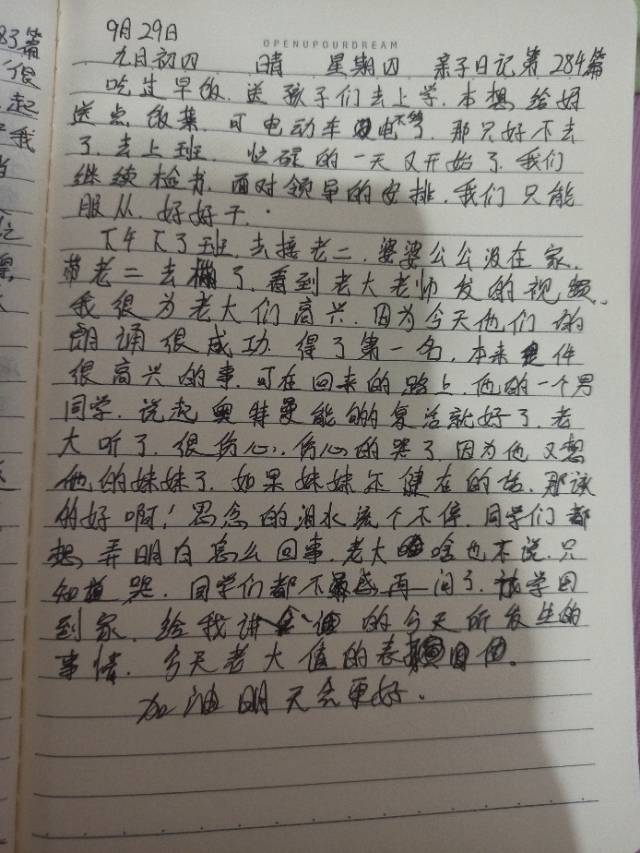 83篇
很
起
我
9月29日
OPENUPOURDREAM
九日初四 晴 星期四 亲子日记第284篇
吃过早饭.送孩子们去上学.本想给妈
送点饭菜.可电动车没电不够.那只好不去
了.去上班.忙碌的一天又开始了.我们
继续检书.面对领导的安排.我们只能
服从.好好干.
下午下了班.去接老二.婆婆公公没在家.
带老二去棚了.看到老大老师发的视频.
我很为老大们高兴.因为今天他们的
朗诵很成功.得了第一名.本来是件
很高兴的事.可在回来的路上.他的一个男
同学.说起奥特曼能的复活就好了.老
大听了.很伤心.伤心的哭了.因为他又想
他的妹妹了.如果妹妹还健在的话.那该
的好啊!思念的泪水流个不停.同学们都
想弄明白怎么回事.老大啥也不说.只
知道哭.同学们都不敢再问了.放学回
到家.给我讲今的今天所发生的
事情.今天老大值的表.
加油明天会更好.